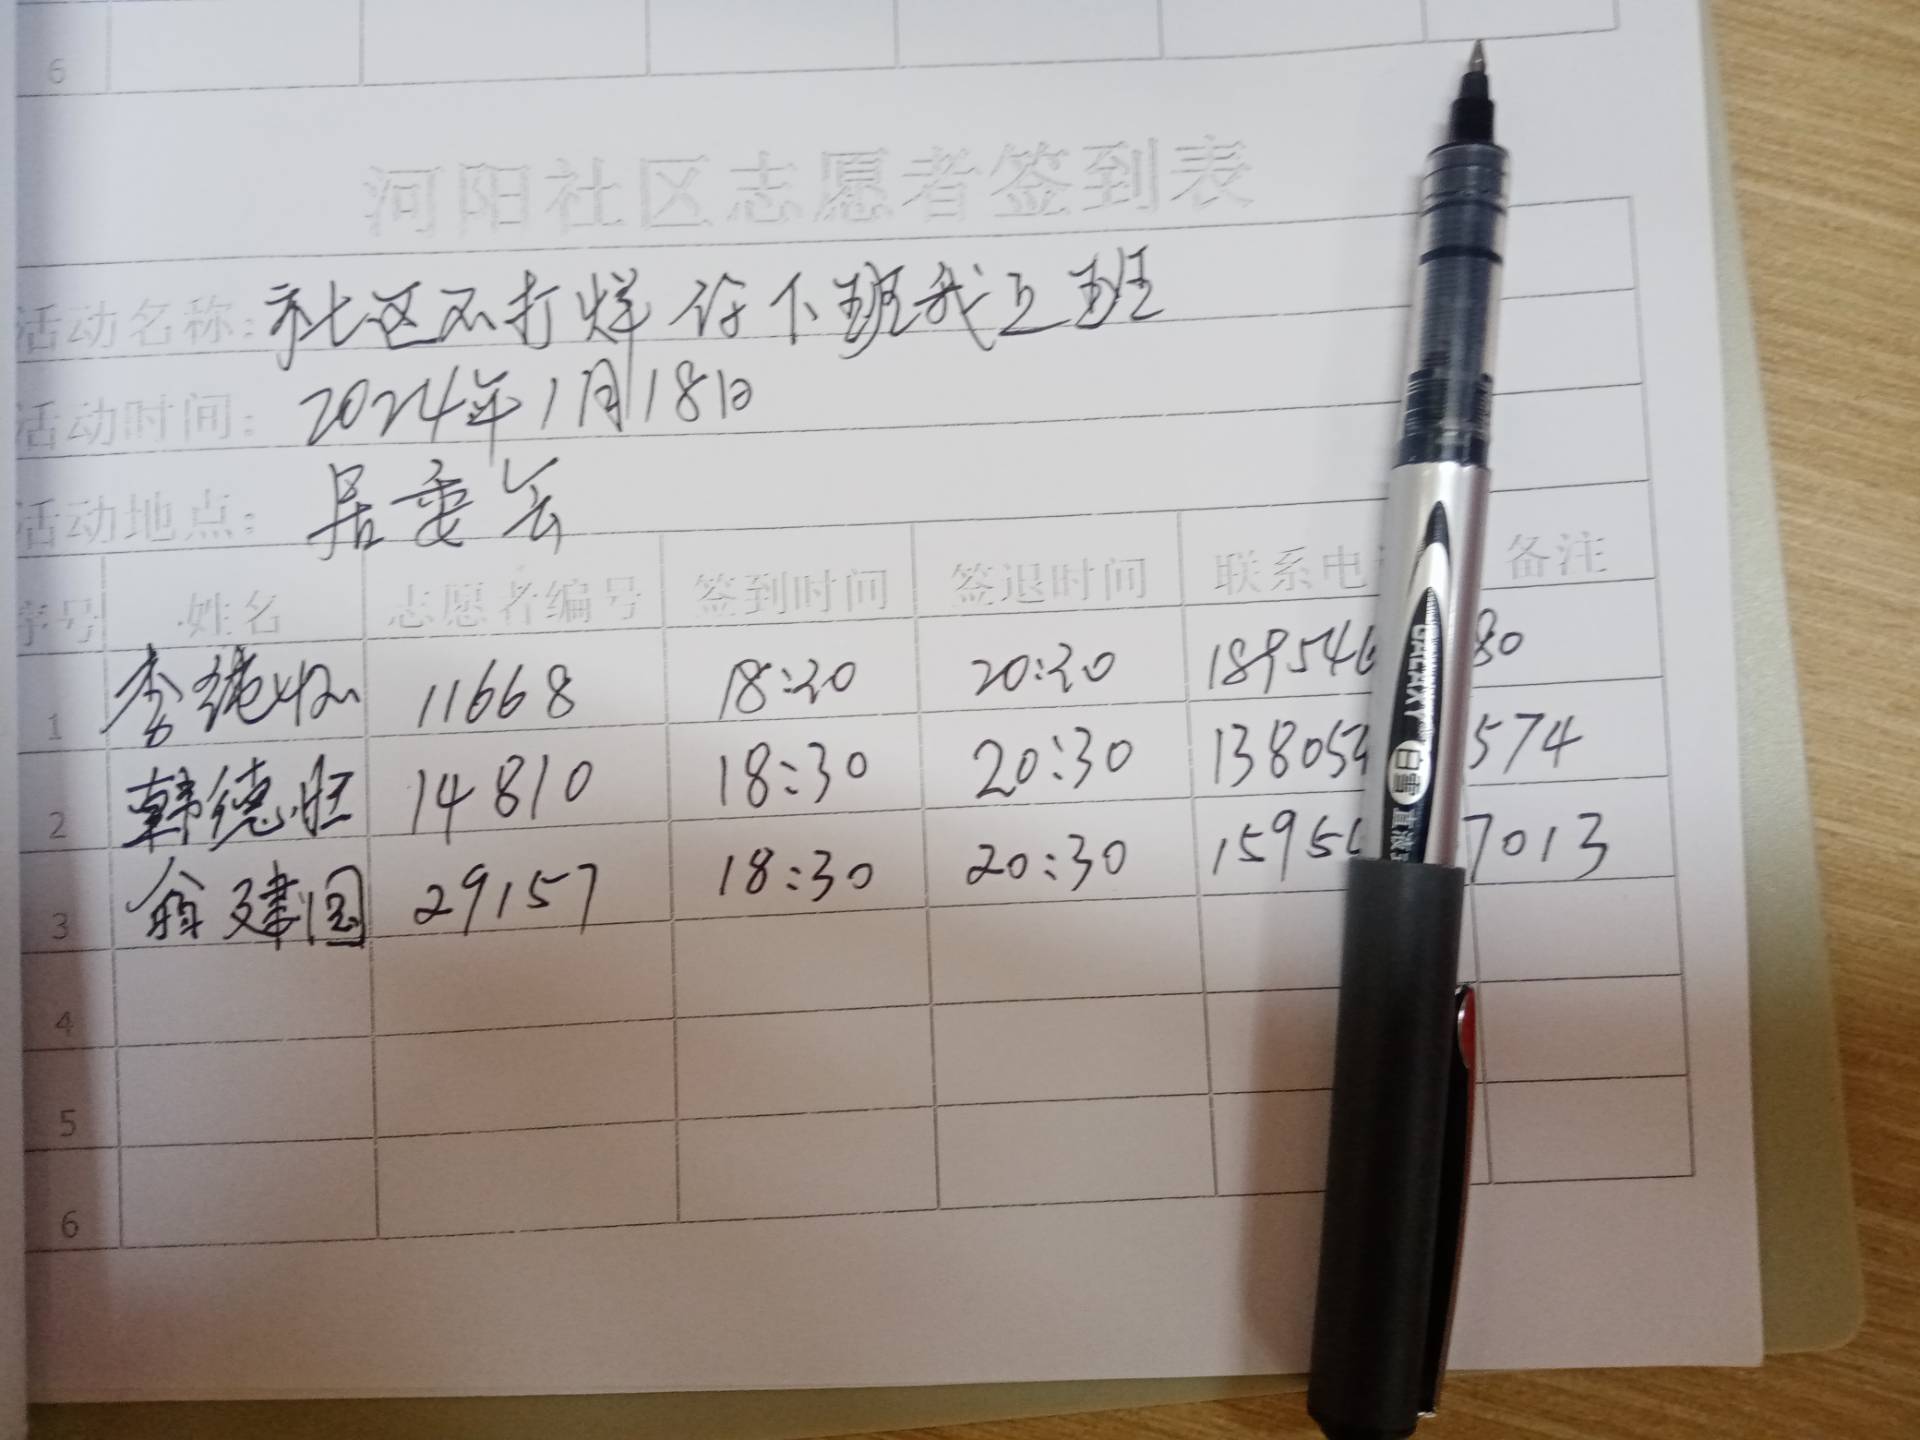 6
河阳社区志愿者签到表
活动名称: 社区不打烊 你下班我上班
活动时间: 2024年1月18日
活动地点: 居委会
序号 姓名 志愿者编号 签到时间 签退时间 联系电 备注
1 李 11668 18:30 20:30 189546 80
2 韩德旺 14810 18:30 20:30 138053 574
3 翁建国 29157 18:30 20:30 1595 7013
4
5
6
GALAXY 白雪 直液